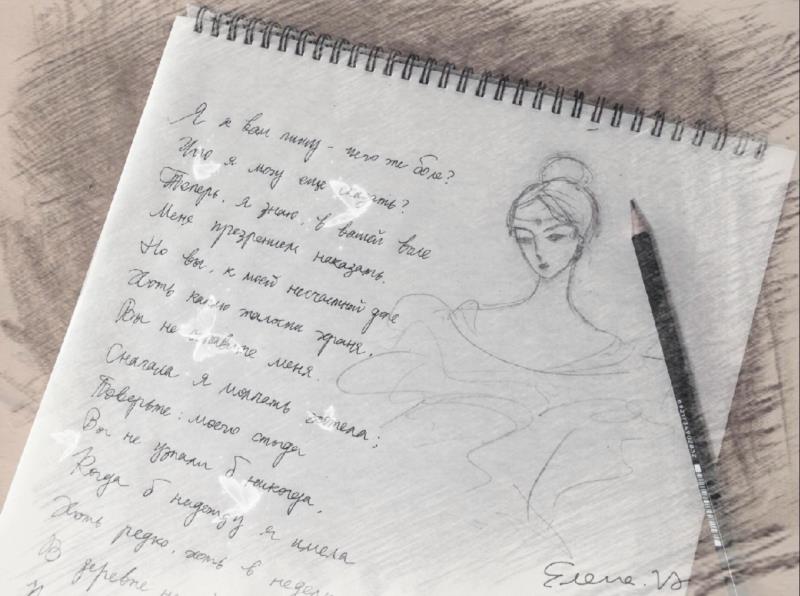 Я к вам пишу – чего же боле?
Что я могу еще сказать?
Теперь, я знаю, в вашей воле
Меня презреньем наказать.
Но вы, к моей несчастной доле
Хоть каплю жалости храня,
Вы не оставите меня.
Сначала я молчать хотела;
Поверьте: моего стыда
Вы не узнали б никогда,
Когда б надежду я имела
Хоть редко, хоть в неделю
В деревне
Елена.